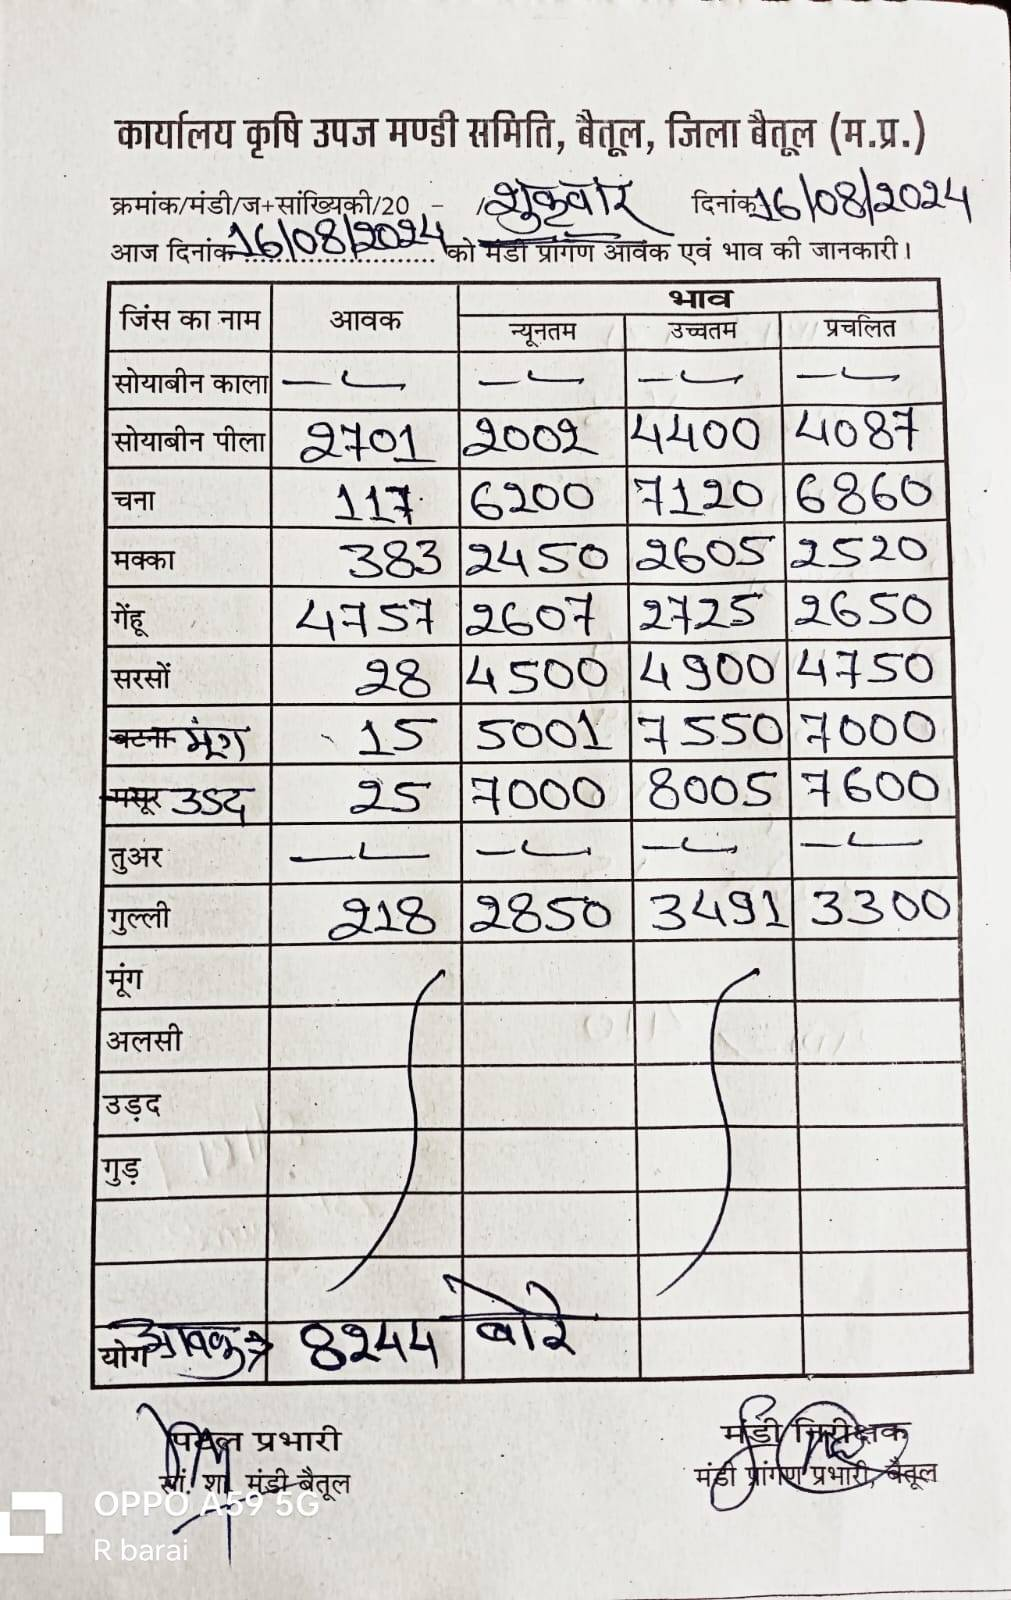 कार्यालय कृषि उपज मण्डी समिति, बैतूल, जिला बैतूल (म.प्र.)
क्रमांक/मंडी/ज+सांख्यिकी/20 - / शुक्रवार दिनांक 16/08/2024
आज दिनांक 16/08/2024 को मंडी प्रांगण आवक एवं भाव की जानकारी।
जिंस का नाम आवक भाव
न्यूनतम उच्चतम प्रचलित
सोयाबीन काला — — — —
सोयाबीन पीला 2701 2002 4400 4087
चना 117 6200 7120 6860
मक्का 383 2450 2605 2520
गेंहू 4757 2607 2725 2650
सरसों 28 4500 4900 4750
बटना मूंग 15 5001 7550 7000
मसूर उडद 25 7000 8005 7600
तुअर — — — —
गुल्ली 218 2850 3491 3300
मूंग
अलसी
उड़द
गुड़
योग आवक → 8244 बोरे
प्रभारी मंडी निरीक्षक
सां. शा. मंडी बैतूल मंडी प्रांगण प्रभारी, बैतूल
OPPO A59 5G
R barai